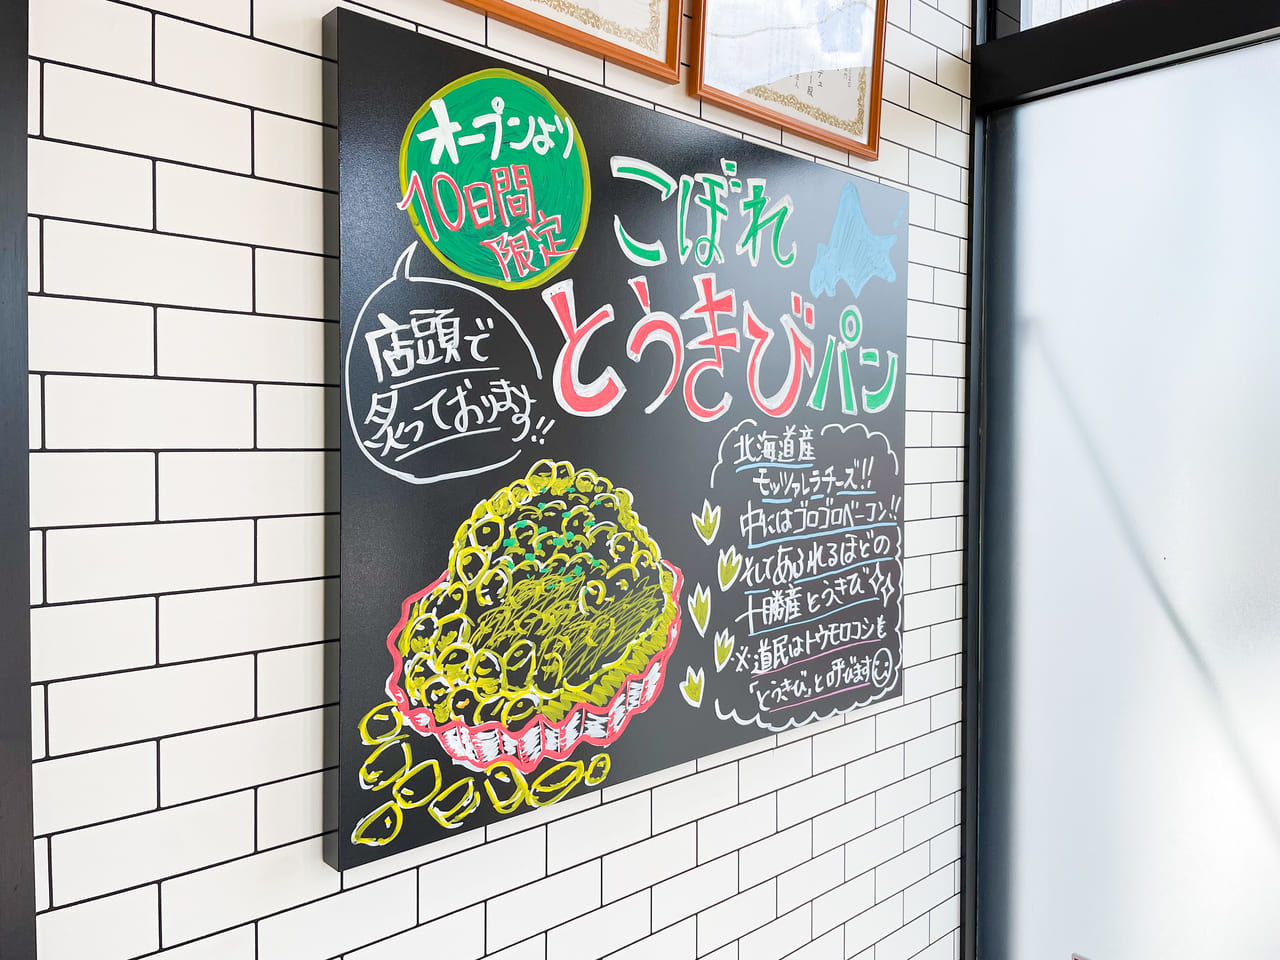 オープンより
10日間
限定
こぼれ
とうきびパン
店頭で
炙っております!!
北海道産
モッツァレラチーズ!!
中にはゴロゴロベーコン!!
そしてあふれるほどの
十勝産とうきび
※道民はトウモロコシも
「とうきび」と呼びます